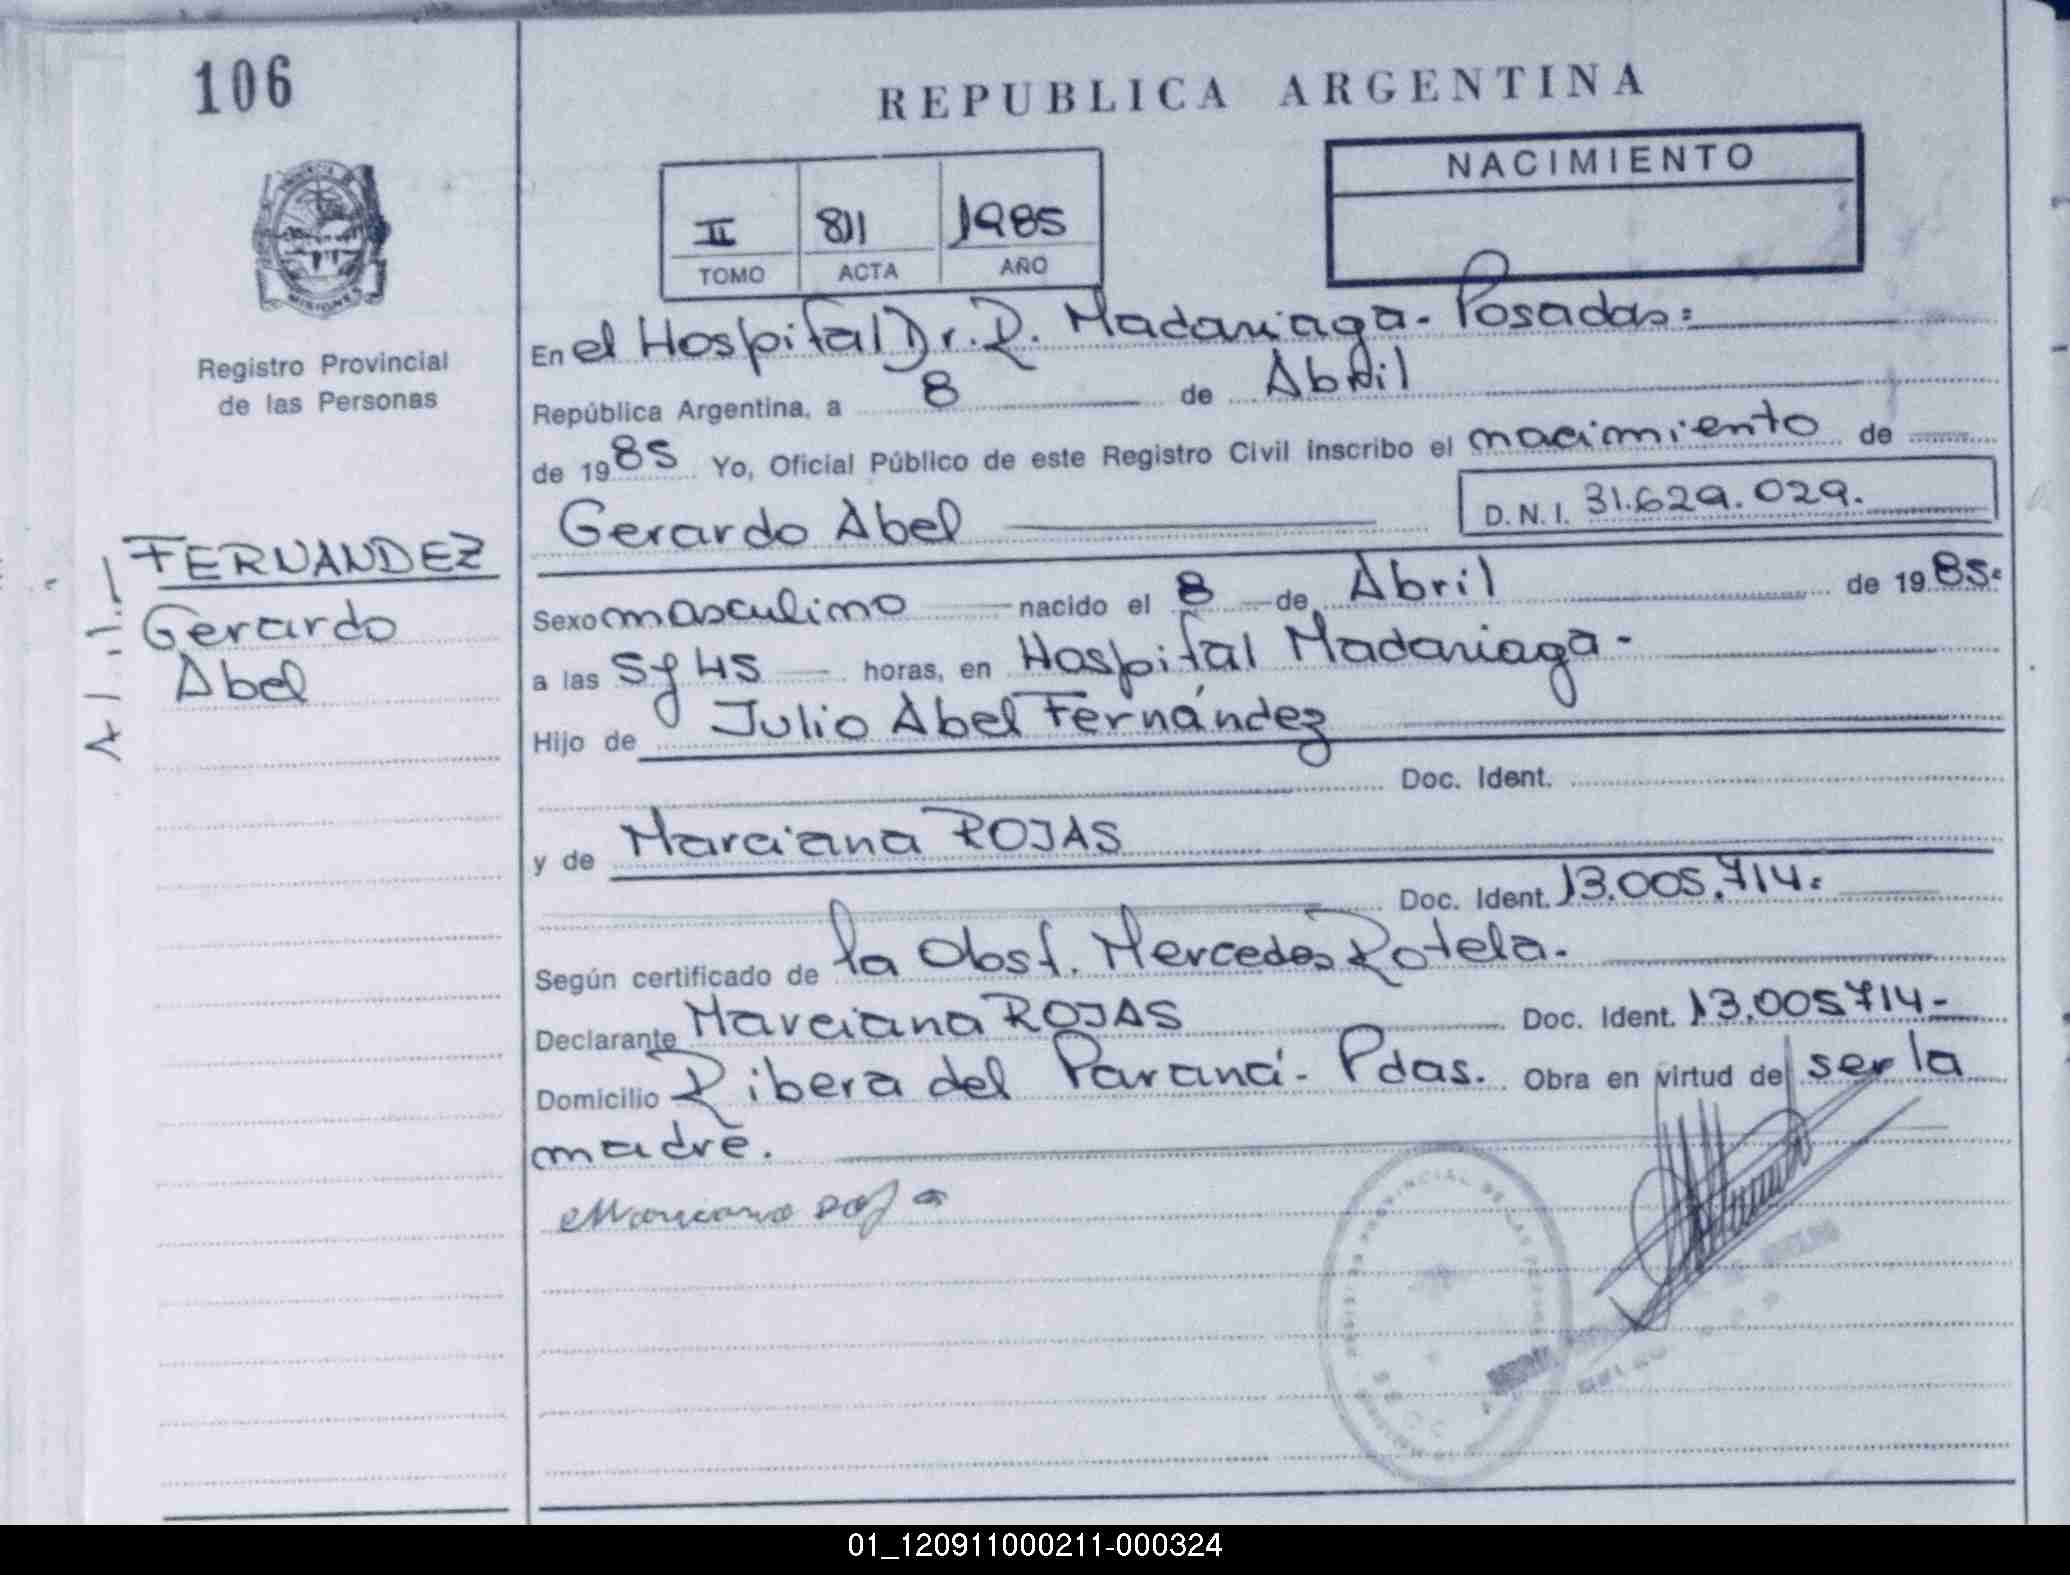 106
REPUBLICA ARGENTINA
NACIMIENTO
II 811 1985
TOMO ACTA AÑO
MISIONES
Registro Provincial
de las Personas
En el Hospital Dr. R. Madariaga - Posadas =
República Argentina, a 8 de Abril
de 1985 Yo, Oficial Público de este Registro Civil inscribo el nacimiento de
Gerardo Abel D.N.I. 31.629.029.
FERNANDEZ
Gerardo
Abel
Sexo masculino nacido el 8 de Abril de 1985.
a las 5 y 45 horas, en Hospital Madariaga -
Hijo de Julio Abel Fernández
Doc. Ident.
y de Marciana ROJAS
Doc. Ident. 13.005.714.
Según certificado de la Obst. Mercedes Rotela.
Declarante Marciana ROJAS Doc. Ident. 13.005714-
Domicilio Ribera del Paraná - Pdas. Obra en virtud de ser la
madre.
01_120911000211-000324